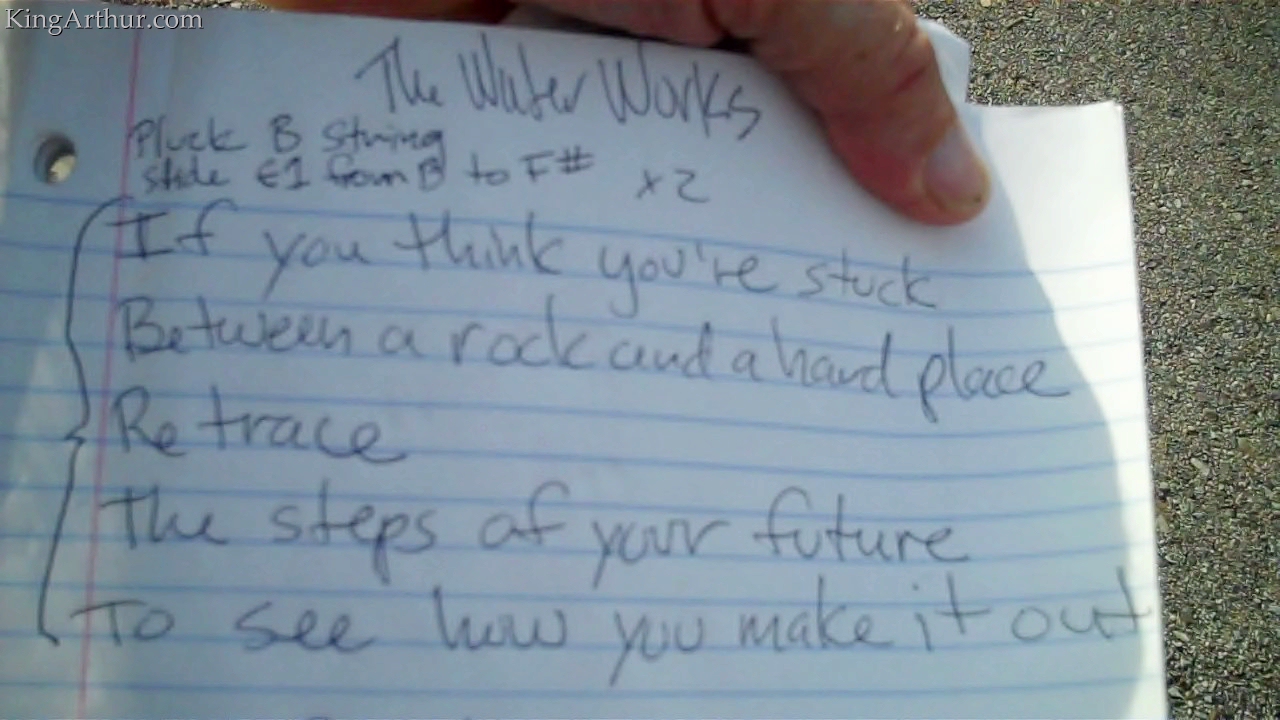 KingArthur.com
The Water Works
Pluck B String
slide E1 from B to F# x2
If you think you're stuck
Between a rock and a hard place
Retrace
The steps of your future
To see how you make it out